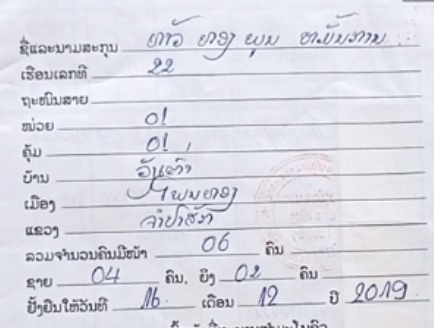 ຊື່ແລະນາມສະກຸນ ທ້າວ ທອງ ພູນ
ເຮືອນເລກທີ 22
ຖະໜົນສາຍ
ໜ່ວຍ 01
ຄຸ້ມ 01
ບ້ານ
ເມືອງ ໂພນທອງ
ແຂວງ ຈໍາປາສັກ
ລວມຈໍານວນຄົນມີໜ້າ 06 ຄົນ
ຊາຍ 04 ຄົນ, ຍິງ 02 ຄົນ
ຢັ້ງຢືນໃຫ້ວັນທີ 16 ເດືອນ 12 ປີ 2019